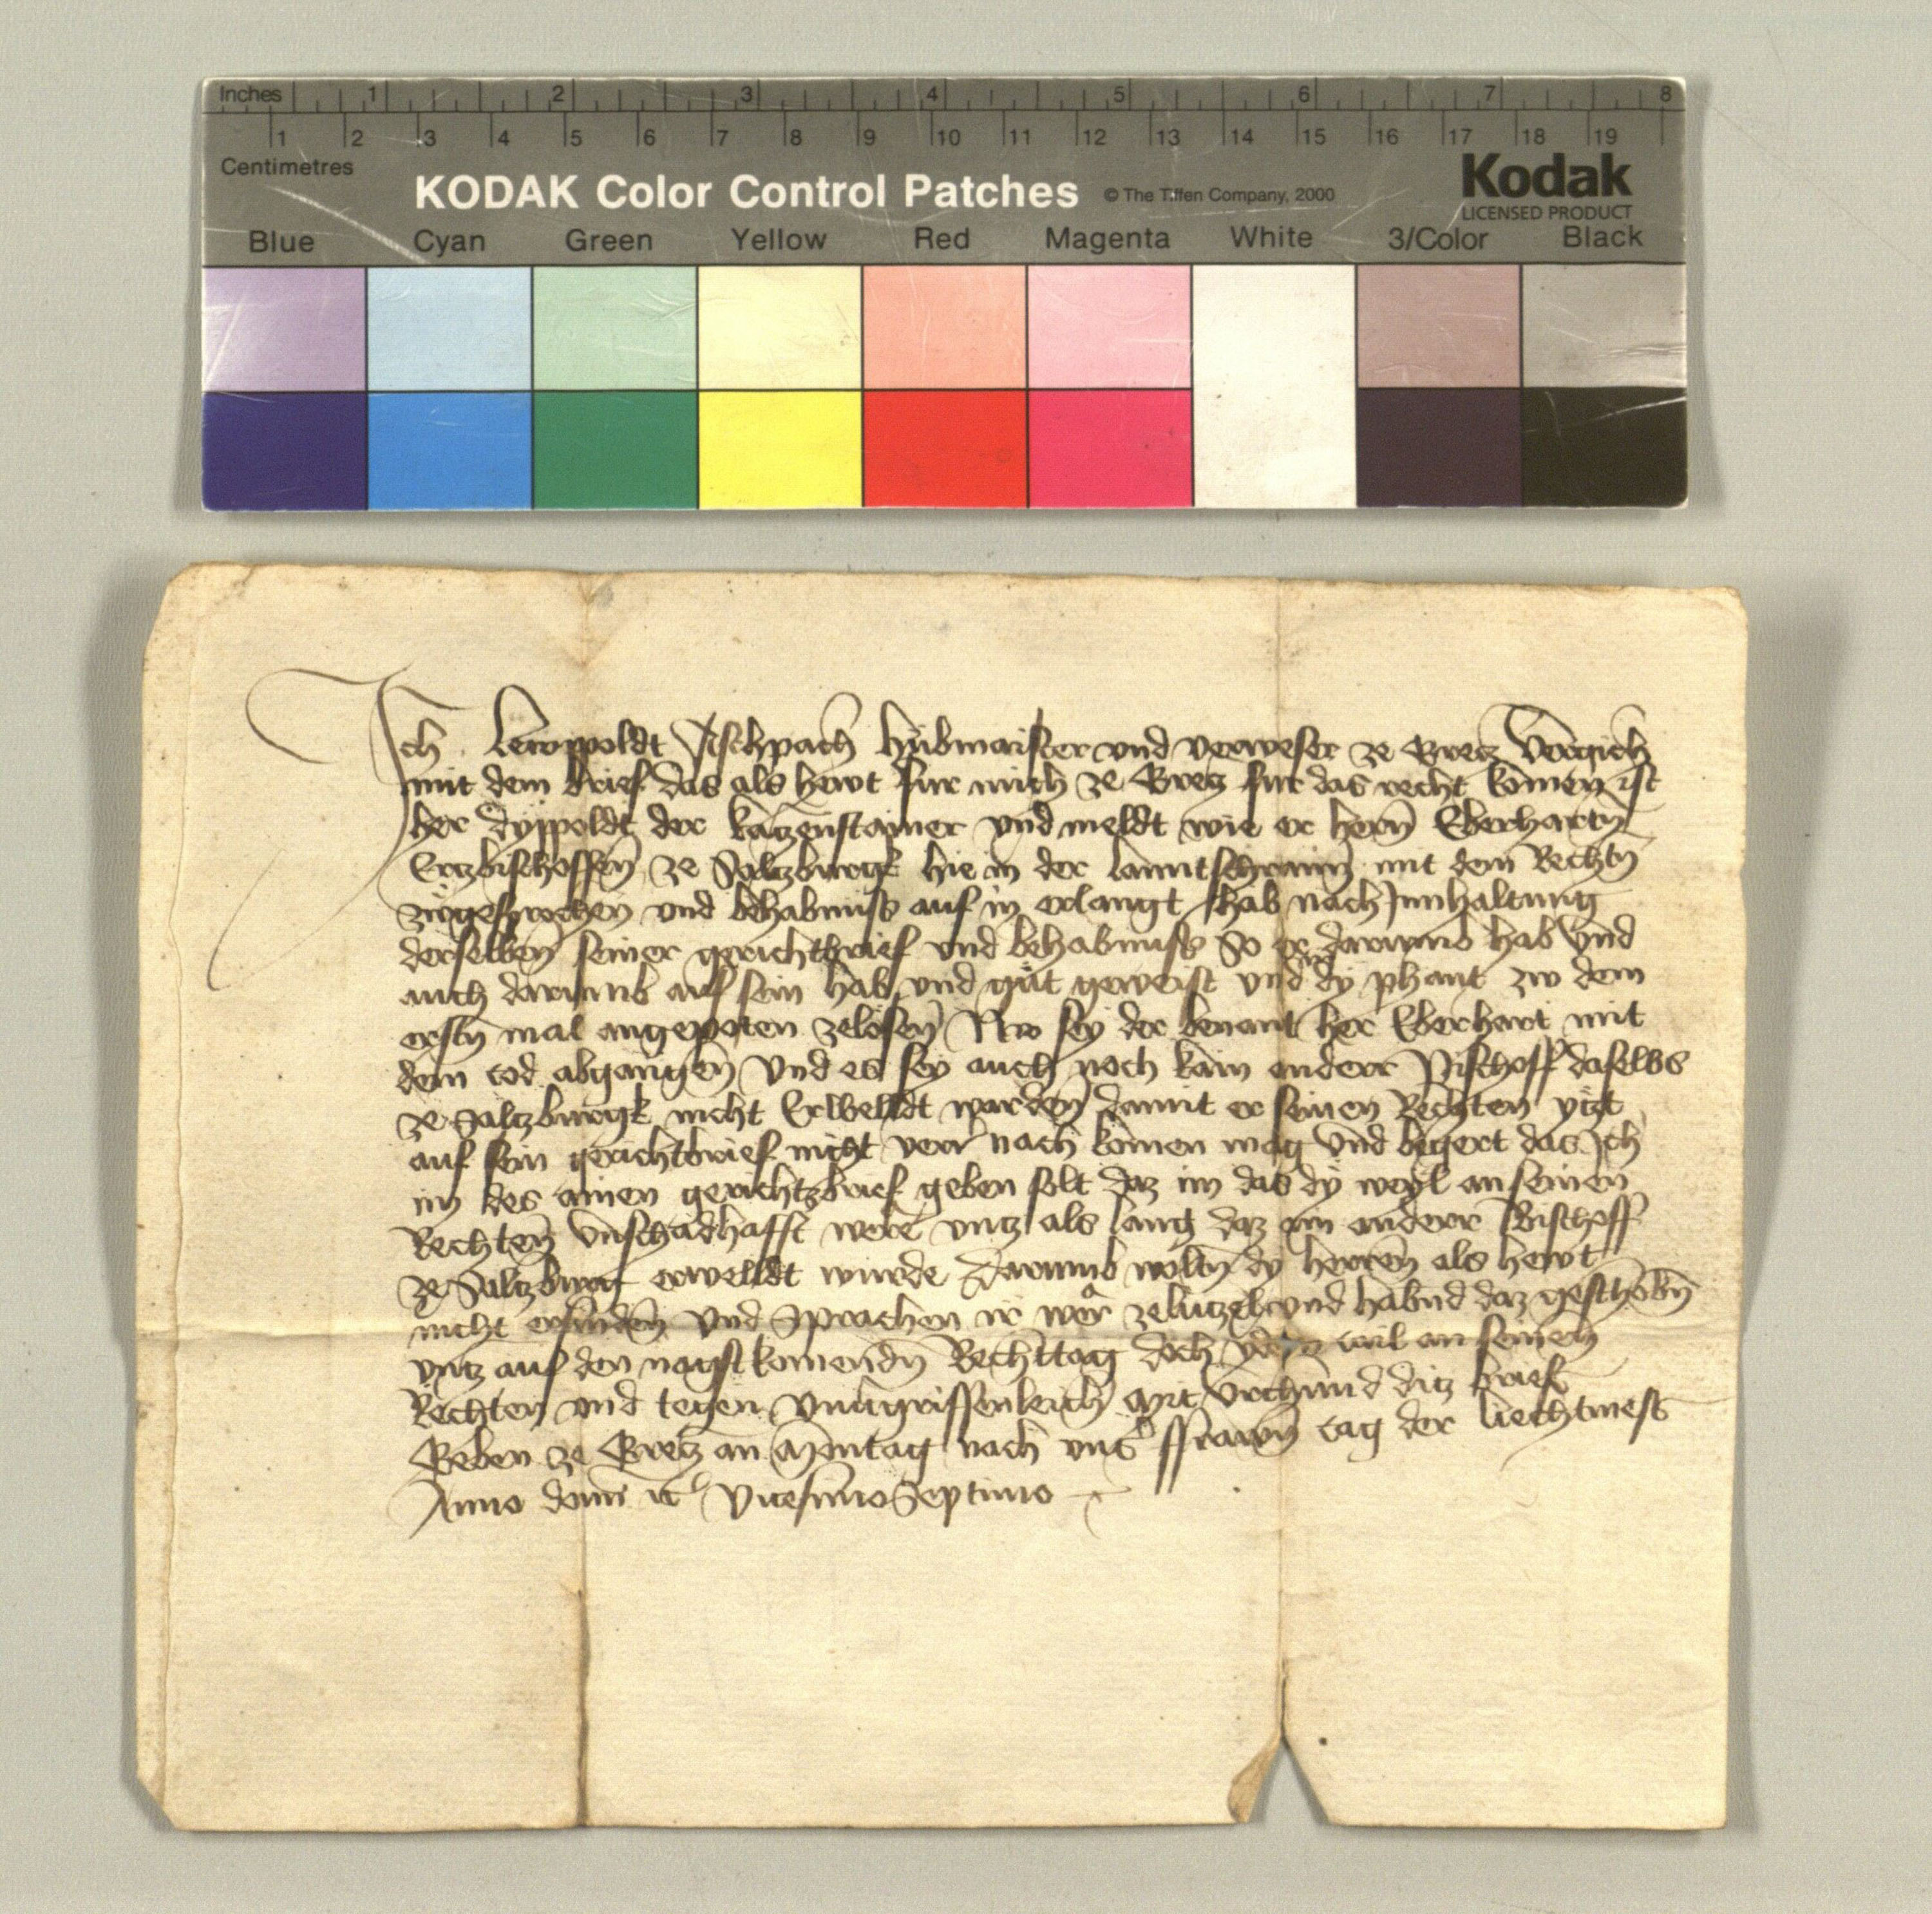 Inches 1 2 3 4 5 6 7 8
1 2 3 4 5 6 7 8 9 10 11 12 13 14 15 16 17 18 19
Centimetres
KODAK Color Control Patches © The Tiffen Company, 2000 Kodak
LICENSED PRODUCT
Blue Cyan Green Yellow Red Magenta White 3/Color Black
Ich Lewppoldt Aschpach hubmaister vnd verweser ze Gretz Vergich
mit dem brief das als hewt fur mich ze Gretz fur das recht komen ist
her dyppoldt der katzenstainer vnd meldt wie er hern̄ Eberhartn̄
Ertzbischoffen̄ ze Saltzburgk hie in der lanntschrann̄ mit dem Rechtn̄
zugesprochen vnd behabnuss auf in erlangt hab nach Innhaltung
derselben̄ seiner gerichtbrief vnd behabnuss So er darumb hab Vnd
auch darumb auf sein hab vnd gůt geweist vnd im dÿ phant zw dem
erstn̄ mal angepoten zelösen̄ Nw sey der benant her Eberhart mit
dem tod abgangen̄ Vnd es sey auch noch kain anderr Pischoff daselbs
ze Saltzburgk nicht Erwelldt warden̄ damit er seinen Rechten yetzt
auf sein gerichtbrief nicht verr nach komen mag Vnd begert das Ich
im des ainen gerichtzbrief geben solt daz im das dÿ weyl an seinen
Rechten̄ Vnschadhafft were vntz als lang daz ain anderr Bischoff
ze Saltzburg erwelldt wurde Darumb woltn̄ dÿ herren̄ als hewt
nicht erfinden̄ Vnd Sprachen ir wår zelutzel vnd habnd daz geschobn̄
vntz auf den nagst komendn̄ Rechttag doch tail an seinen̄
Rechten vnd tegen Vnuergriffenleich Mit Vrchund ditz brief
Geben ze Gretz an Montag nach vnsr̄ ffrawn̄ tag der liechtmess
Anno domī Vicesimo Septimo